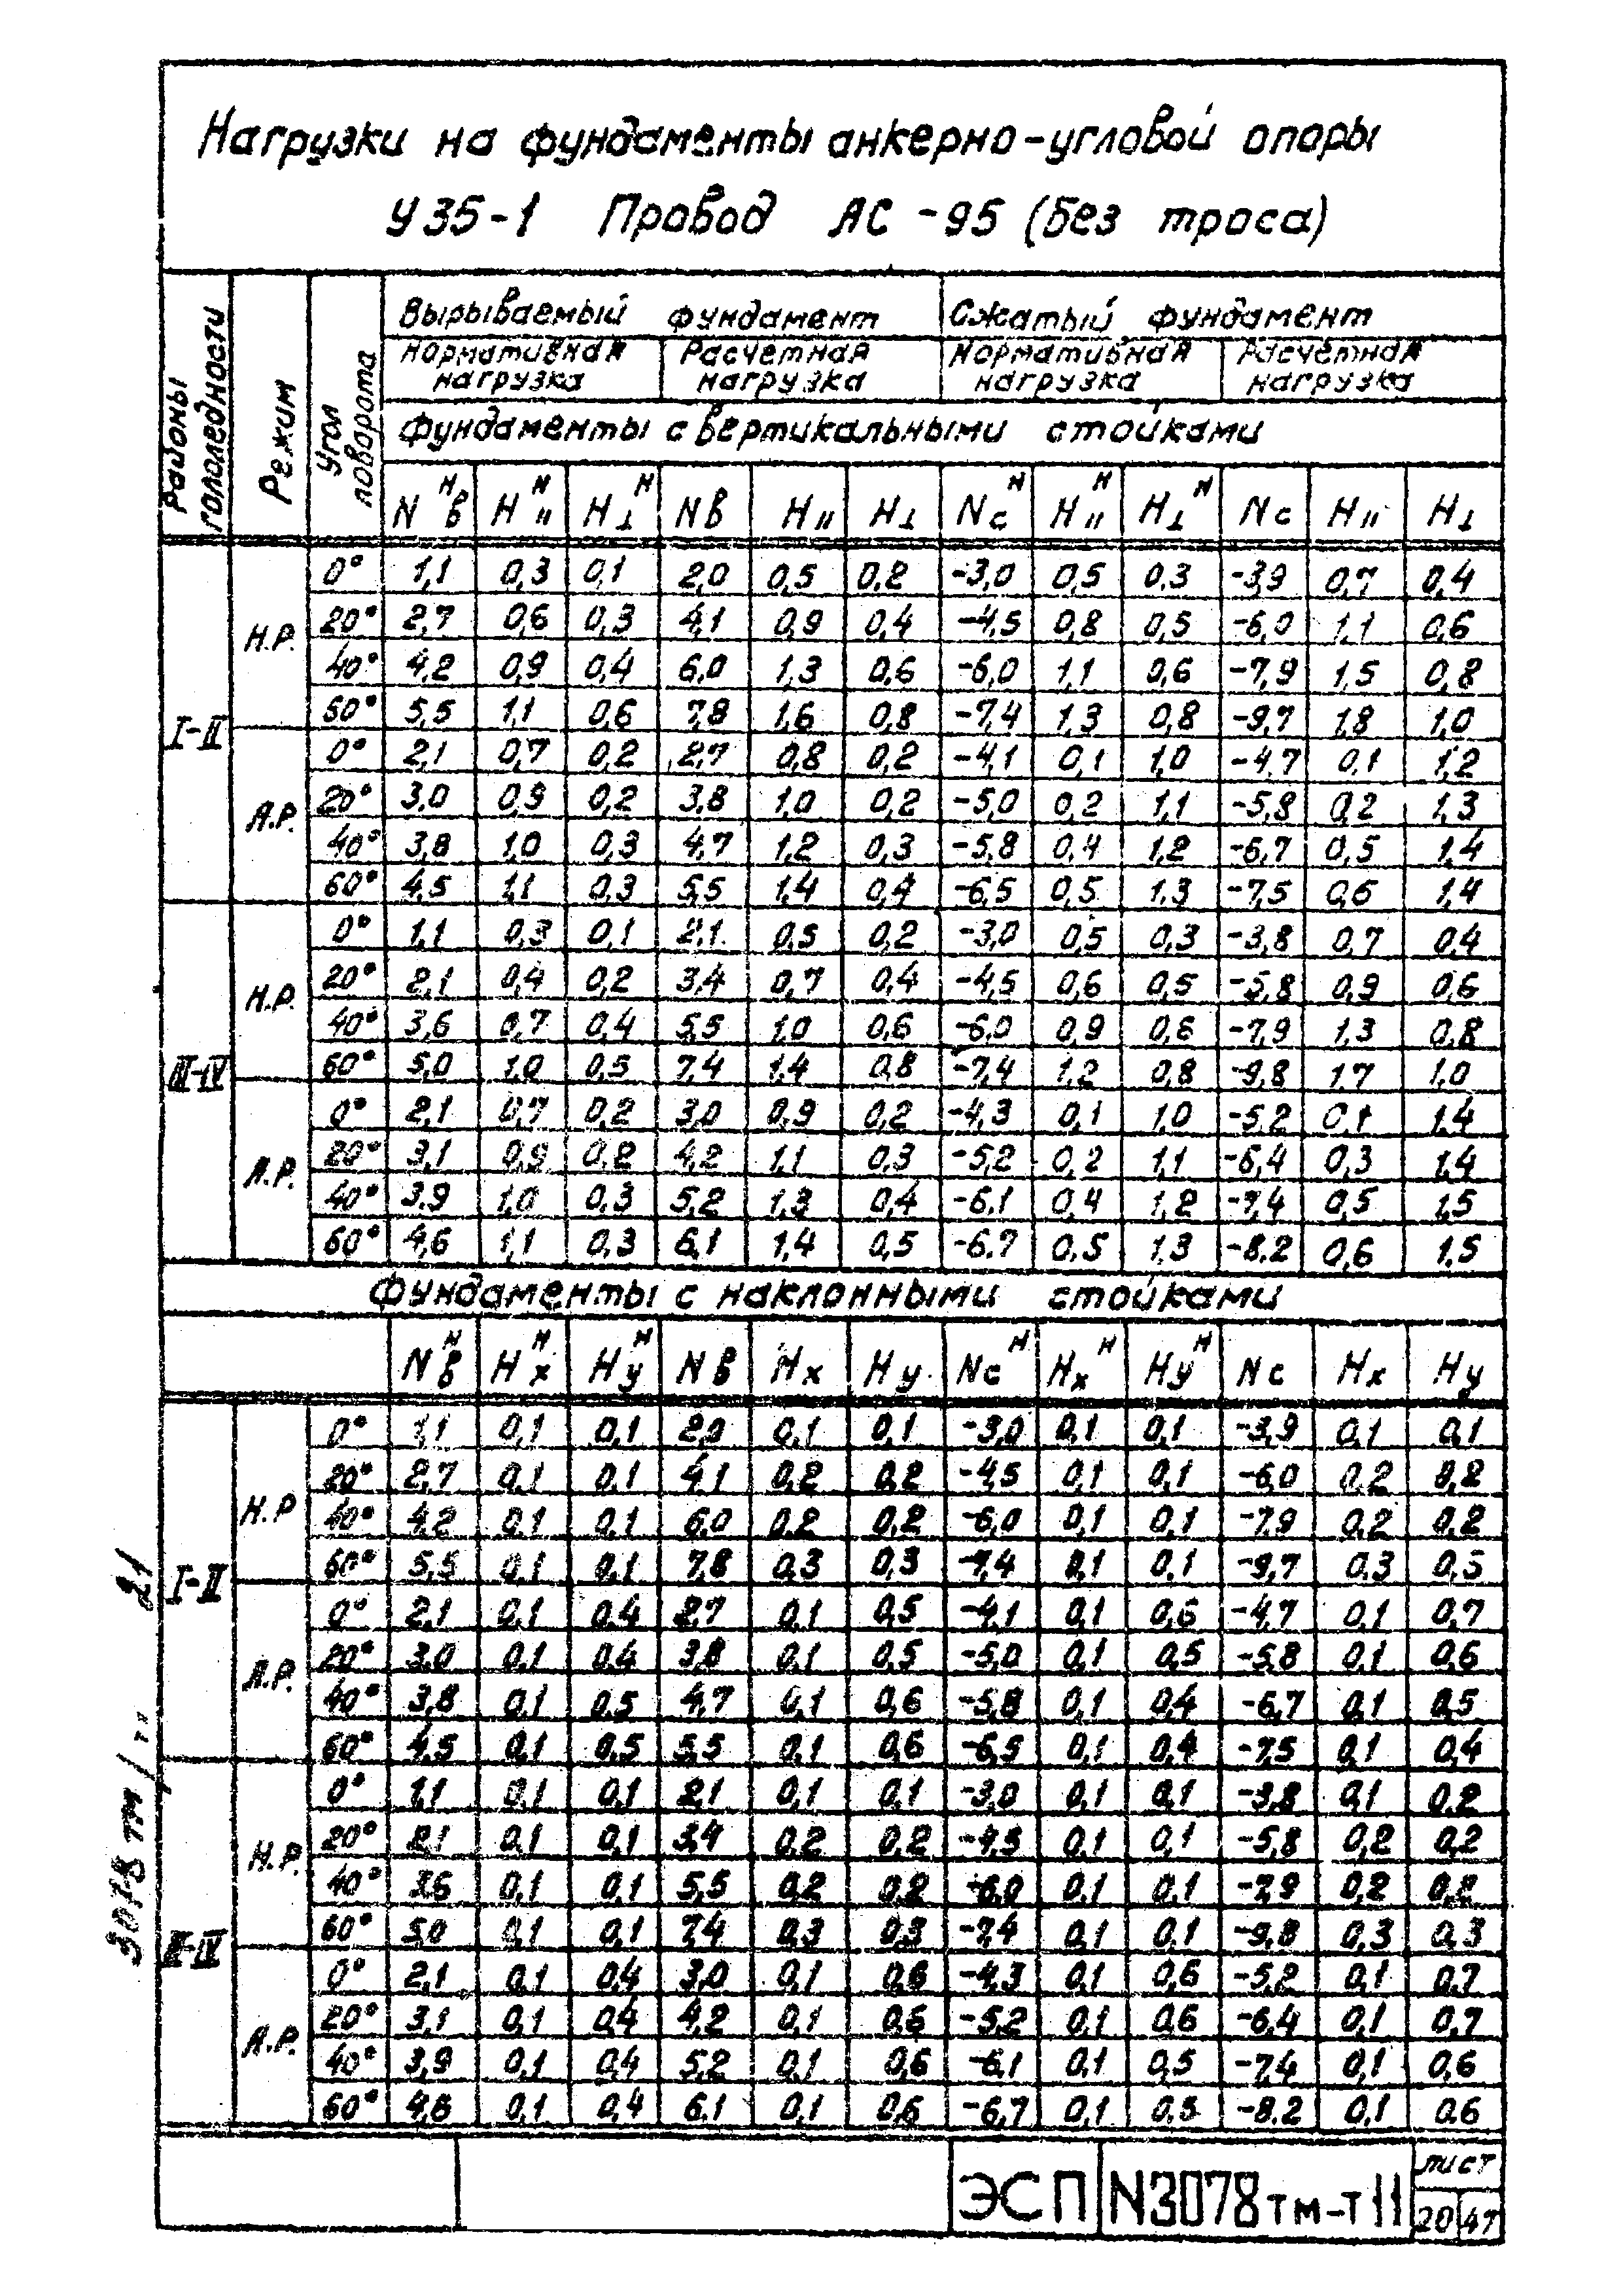 Нагрузки на фундаменты анкерно-угловой опоры
У35-1 Провод АС-95 (без троса)
Районы гололедности
Режим
Угол поворота
Вырываемый фундамент Сжатый фундамент
Нормативная нагрузка Расчетная нагрузка Нормативная нагрузка Расчетная нагрузка
Фундаменты с вертикальными стойками
Nвᴴ H||ᴴ H⊥ᴴ Nв H|| H⊥ Ncᴴ H||ᴴ H⊥ᴴ Nc H|| H⊥
I-II
Н.Р.
0° 1,1 0,3 0,1 2,0 0,5 0,2 -3,0 0,5 0,3 -3,9 0,7 0,4
20° 2,7 0,6 0,3 4,1 0,9 0,4 -4,5 0,8 0,5 -6,0 1,1 0,6
40° 4,2 0,9 0,4 6,0 1,3 0,6 -6,0 1,1 0,6 -7,9 1,5 0,8
60° 5,5 1,1 0,6 7,8 1,6 0,8 -7,4 1,3 0,8 -9,7 1,8 1,0
А.Р.
0° 2,1 0,7 0,2 2,7 0,8 0,2 -4,1 0,1 1,0 -4,7 0,1 1,2
20° 3,0 0,9 0,2 3,8 1,0 0,2 -5,0 0,2 1,1 -5,8 0,2 1,3
40° 3,8 1,0 0,3 4,7 1,2 0,3 -5,8 0,4 1,2 -6,7 0,5 1,4
60° 4,5 1,1 0,3 5,5 1,4 0,4 -6,5 0,5 1,3 -7,5 0,6 1,4
III-IV
Н.Р.
0° 1,1 0,3 0,1 2,1 0,5 0,2 -3,0 0,5 0,3 -3,8 0,7 0,4
20° 2,1 0,4 0,2 3,4 0,7 0,4 -4,5 0,6 0,5 -5,8 0,9 0,6
40° 3,6 0,7 0,4 5,5 1,0 0,6 -6,0 0,9 0,6 -7,9 1,3 0,8
60° 5,0 1,0 0,5 7,4 1,4 0,8 -7,4 1,2 0,8 -9,8 1,7 1,0
А.Р.
0° 2,1 0,7 0,2 3,0 0,9 0,2 -4,3 0,1 1,0 -5,2 0,1 1,4
20° 3,1 0,9 0,2 4,2 1,1 0,3 -5,2 0,2 1,1 -6,4 0,3 1,4
40° 3,9 1,0 0,3 5,2 1,3 0,4 -6,1 0,4 1,2 -7,4 0,5 1,5
60° 4,6 1,1 0,3 6,1 1,4 0,5 -6,7 0,5 1,3 -8,2 0,6 1,5
Фундаменты с наклонными стойками
Nвᴴ Hxᴴ Hyᴴ Nв Hx Hy Ncᴴ Hxᴴ Hyᴴ Nc Hx Hy
I-II
Н.Р
0° 1,1 0,1 0,1 2,0 0,1 0,1 -3,0 0,1 0,1 -3,9 0,1 0,1
20° 2,7 0,1 0,1 4,1 0,2 0,2 -4,5 0,1 0,1 -6,0 0,2 0,2
40° 4,2 0,1 0,1 6,0 0,2 0,2 -6,0 0,1 0,1 -7,9 0,2 0,2
60° 5,5 0,1 0,1 7,8 0,3 0,3 -7,4 0,1 0,1 -9,7 0,3
А.Р.
0° 2,1 0,1 0,4 2,7 0,1 0,5 -4,1 0,1 0,6 -4,7 0,1 0,7
20° 3,0 0,1 0,4 3,8 0,1 0,5 -5,0 0,1 0,5 -5,8 0,1 0,6
40° 3,8 0,1 0,5 4,7 0,1 0,6 -5,8 0,1 0,4 -6,7 0,1 0,5
60° 4,5 0,1 0,5 5,5 0,1 0,6 -6,5 0,1 0,4 -7,5 0,1 0,4
III-IV
Н.Р.
0° 1,1 0,1 0,1 2,1 0,1 0,1 -3,0 0,1 0,1 -3,8 0,1 0,2
20° 2,1 0,1 0,1 3,4 0,2 0,2 -4,5 0,1 0,1 -5,8 0,2 0,2
40° 3,6 0,1 0,1 5,5 0,2 0,2 -6,0 0,1 0,1 -7,9 0,2 0,2
60° 5,0 0,1 0,1 7,4 0,3 0,3 -7,4 0,1 0,1 -9,8 0,3 0,3
А.Р.
0° 2,1 0,1 0,4 3,0 0,1 0,6 -4,3 0,1 0,6 -5,2 0,1 0,7
20° 3,1 0,1 0,4 4,2 0,1 0,6 -5,2 0,1 0,6 -6,4 0,1 0,7
40° 3,9 0,1 0,4 5,2 0,1 0,6 -6,1 0,1 0,5 -7,4 0,1 0,6
60° 4,6 0,1 0,4 6,1 0,1 0,6 -6,7 0,1 0,5 -8,2 0,1 0,6
3078 тм / 21
ЭСП N3078тм-т11
лист
20 47